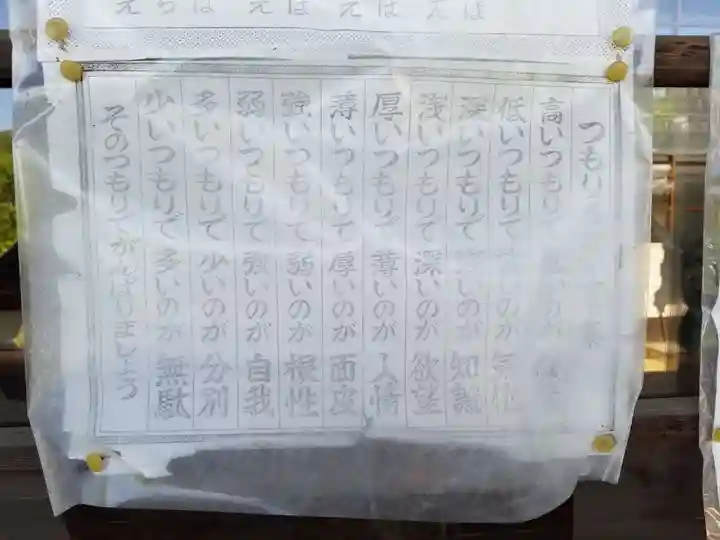 つもり
高いつもりで低いのが
低いつもりで高いのが気位
深いつもりで浅いのが知識
浅いつもりで深いのが欲望
厚いつもりで薄いのが人情
薄いつもりで厚いのが面皮
強いつもりで弱いのが根性
弱いつもりで強いのが自我
多いつもりで少いのが分別
少いつもりで多いのが無駄
そのつもりでがんばりましょう